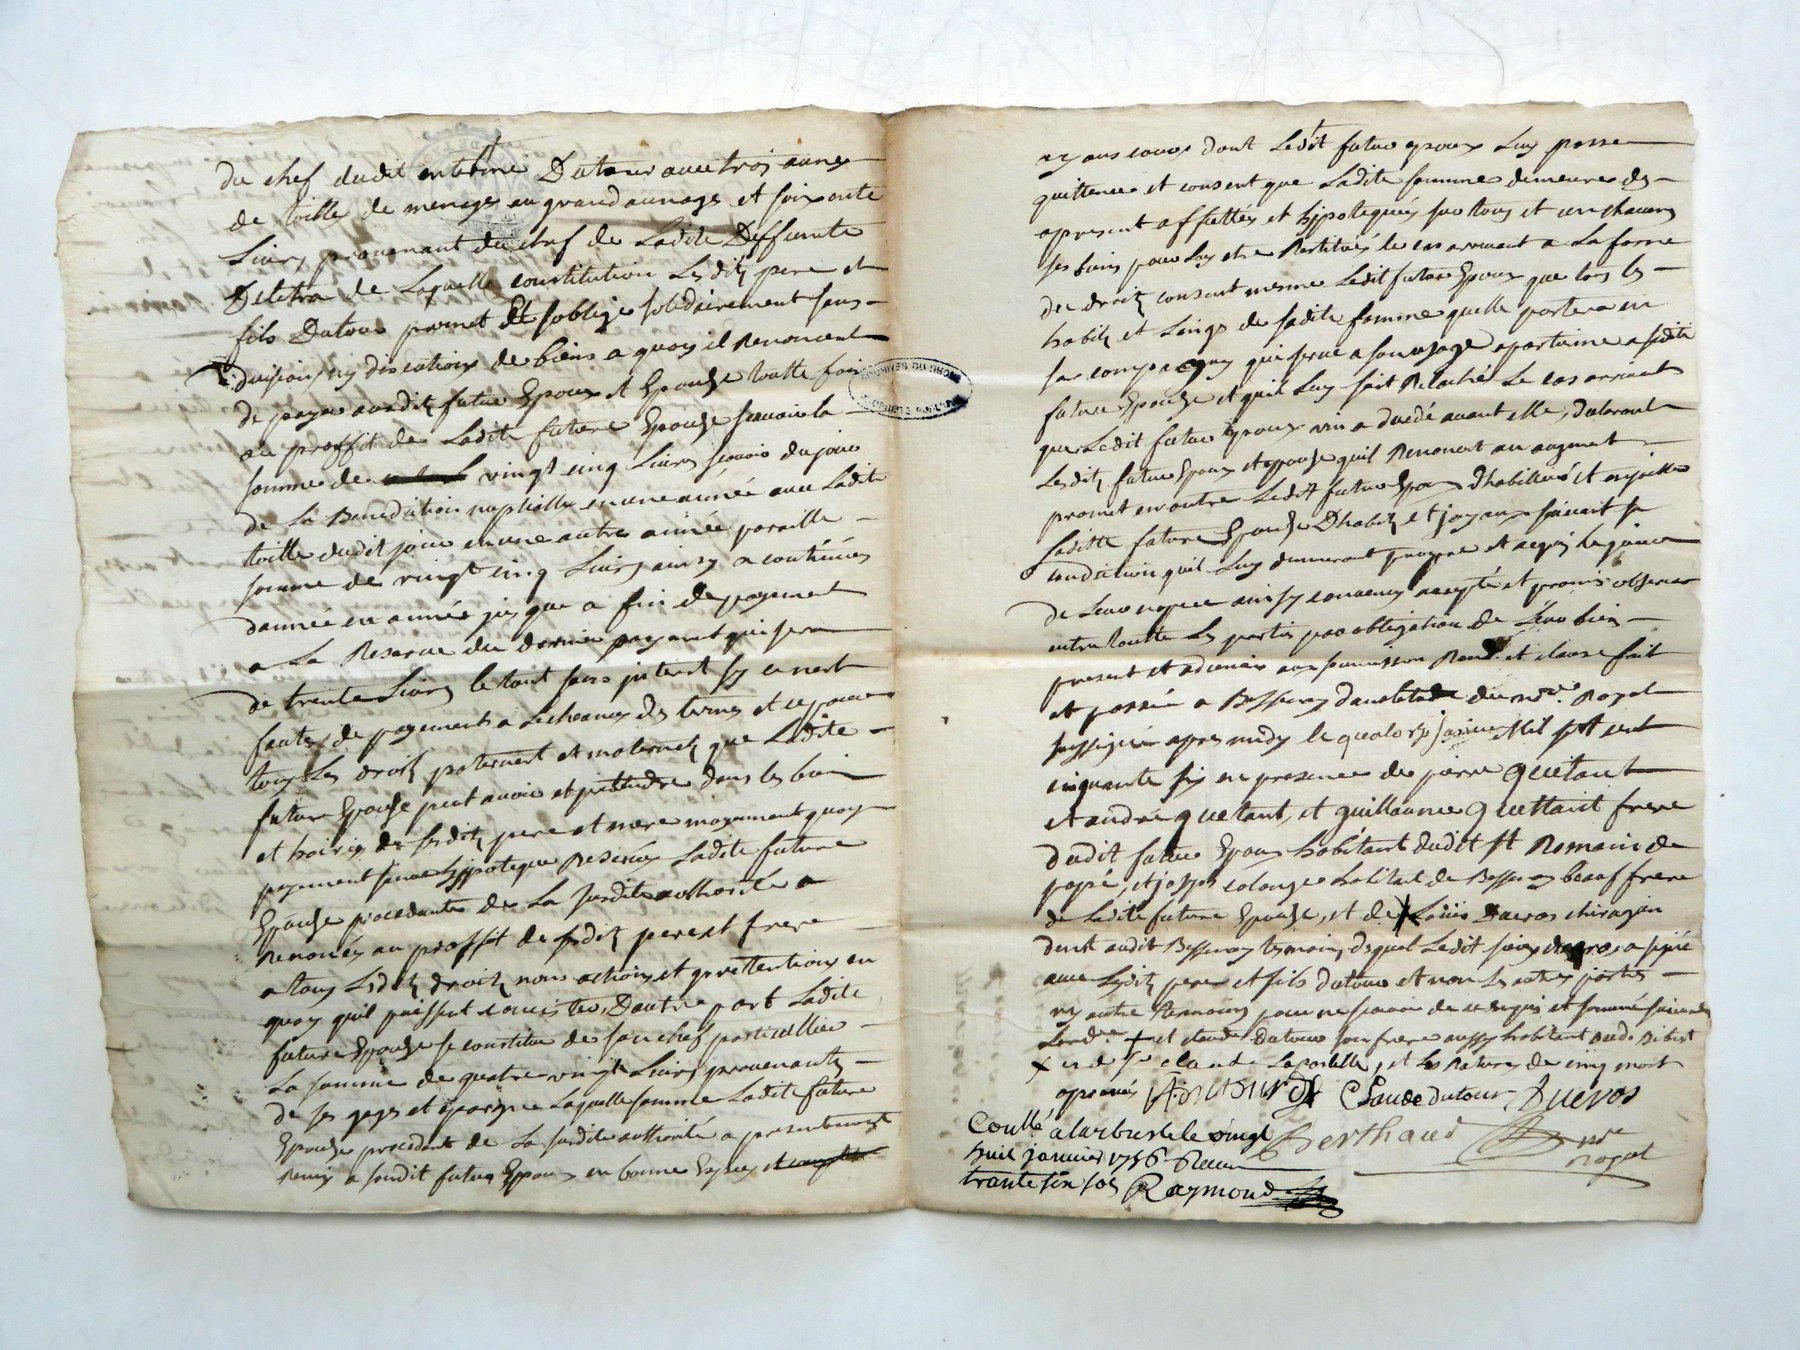 du chef dudit Dutour avec trois aunes
de toille de menage au grand aunage et soixante
Livres provenant du chef de Ladite Deffunte
de Laquelle constitution Lesdits pere et
fils Dutour promet et soblige solidairement sans
division ny discution de biens a quoy il Renoncent
de payer auxdits futur Epoux et Epouse toutte fois
au proffit de Ladite future Epouse scavoir la
somme de vingt cinq Livres scavoir du jour
de La Benediction nuptialle en une année avec Ladite
toille dudit jour en une autre année pareille
somme de vingt cinq Livres ainsy a continuer
dannée en année jusque a fin de payement
a La Reserve du dernier payement qui sera
de trente Livres le tout sans interest sy ce nest
faute de payement a Lecheance des termes et ce pour
tous Les droits paternel et maternel que Ladite
future Epouse peut avoir et pretendre dans les biens
et hoiries de sesdits pere et mere moyennant quoy
payement sans hypoteque Reservée Ladite future
Epouse procedante de La susdite authorité a
Renoncer au proffit de sesdits pere et frere
a tous Lesdits droits noms actions et prettentions en
quoy quil puissent consister, Dautre part Ladite
future Epouse se constitue de son chef particullier
La somme de quatre vingt Livres provenants
de ses gages et epargne Laquelle somme Ladite future
Epouse procedant de La susdite authorité a presentement
Remis a sondit futur Epoux en bonnes Especes et
ayans cours dont Ledit futur epoux Luy passe
quittence et consent que Ladite somme demeure des
apresent affettés et hypotequés sur tous et un chacuns
ses biens pour Luy etre Restitués le cas arrivant a La forme
du droit consent mesme Ledit futur Epoux que tous les
habits et Linge de sadite femme quelle portera en
sa compagny qui serve a son usage apartienne a sadite
future Epouse et quil Luy soit Relaché Le cas arrivant
que Ledit futur Epoux vin a decedé avant elle, declarant
Lesdits futur Epoux et epouse quil Renoncent au augment
promet en outre Ledit futur Epoux dhabiller et enjoeller
Laditte future Epouse Dhabits et joyaux suivant sa
condition quil Luy demeuront propre et acquis
de Leur nopce ainsy convenu accepté et promis observer
entre toutte Les parties par obligation de Leur bien
present et advenir aux soumission Renon. et clause fait
et passé a Bessenay dans letude du no.re Royal
soussigné apres midy le quatorze janvier Mil sept cent
cinquante six en presence de pierre Quetant
et andré quetant, et guillaume Quettant frere
dudit futur Epoux habitant dudit St Romain de
popé, et colonge habitant de Bessenay beauf frere
de Ladite future Epouse, et de Louis Dueros chirugien
audit Bessenay tesmoins desquel Ledit sieur dueros a signé
avec Lesdits pere et fils dutour et non Les autres parties
ny autre temoins pour ne scavoir de ce enquis et sommé suivant
Lord.ce + et claude Dutour son frere aussy habitant dud.
+ et de S.r claude, et Les Ratures de cinq mots
aprouvés A. DUTOUR Claude dutour Dueros
Coullé a larbresle le vingt Berthaud no.re
huit janvier 1756 Recu Royal
trante six sols Raymond
ARCHIVES DU RHONE